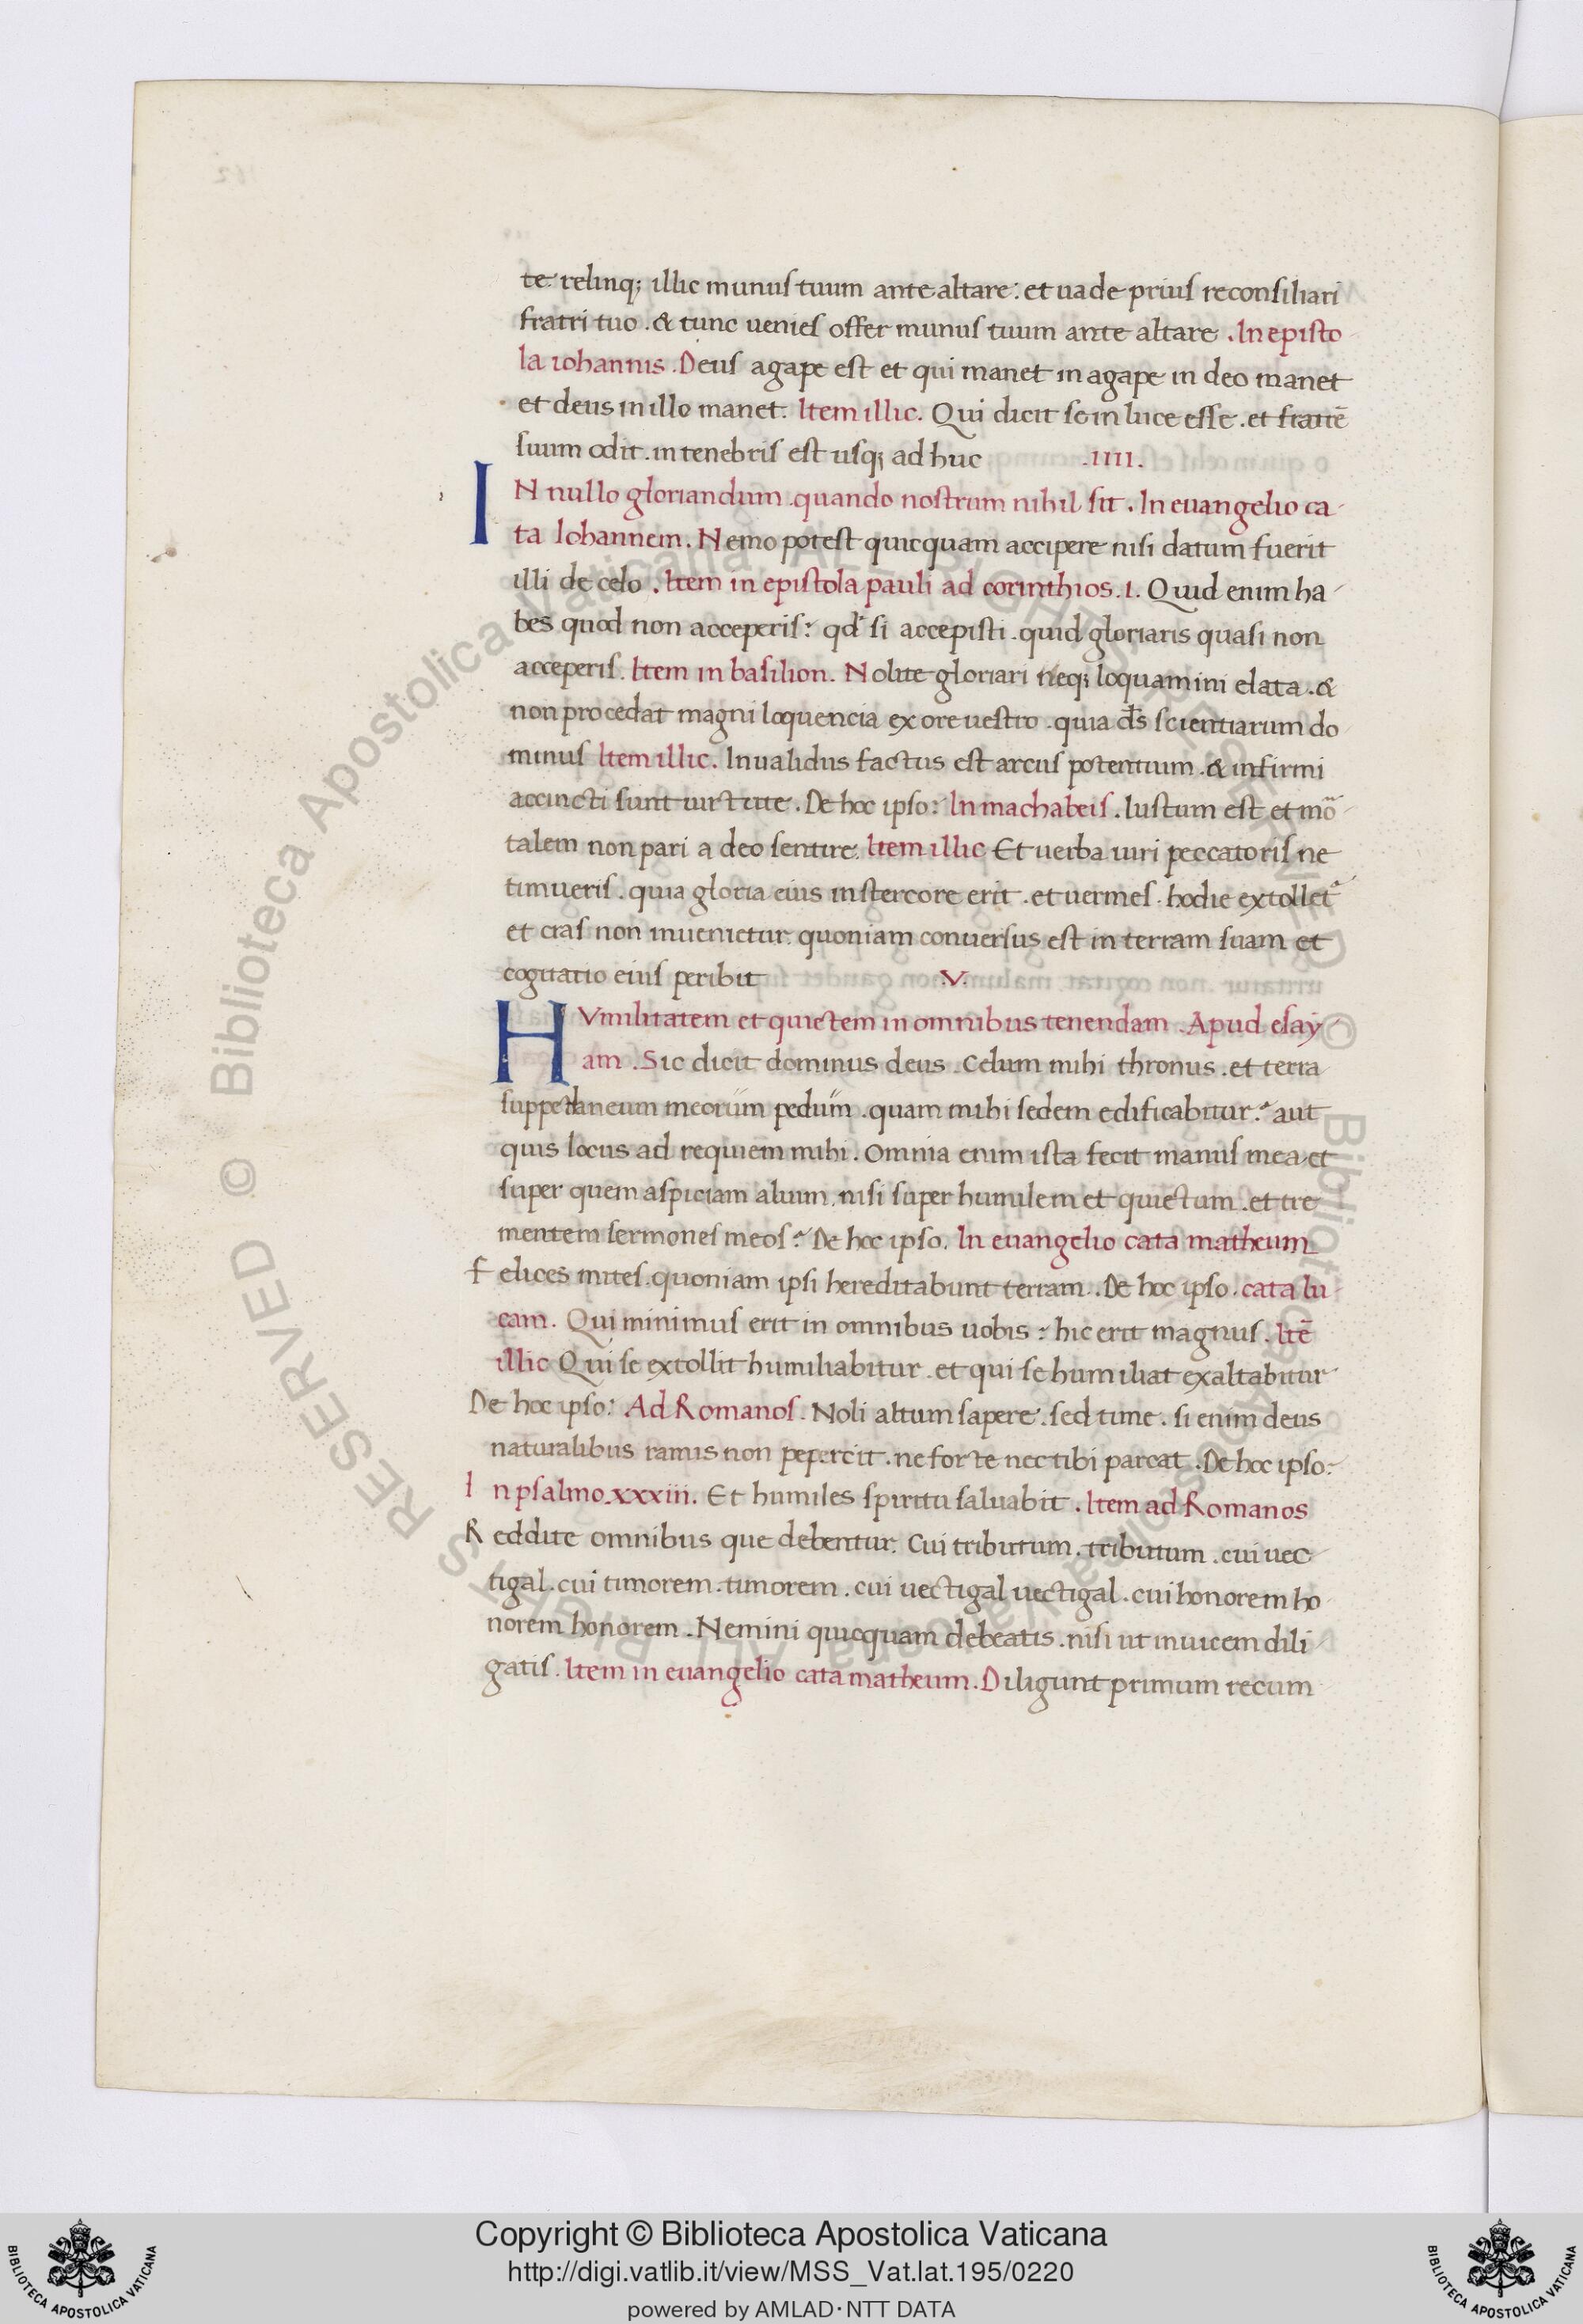 te relinq; illic munus tuum ante altare: et uade prius reconsiliari
fratri tuo . & tunc uenies offer munus tuum ante altare . In episto
la iohannis . Deus agape est et qui manet in agape in deo manet
et deus in illo manet. Item illic. Qui dicit se in luce esse . et fratrē
suum odit . in tenebris est usq; ad huc .IIII.
IN nullo gloriandum . quando nostrum nihil sit . In euangelio ca
ta Iohannem. Nemo potest quicquam accipere nisi datum fuerit
illi de celo . Item in epistola pauli ad corinthios . I. Quid enim ha
bes quod non acceperis: qd' si accepisti . quid gloriaris quasi non
acceperis. Item in basilion. Nolite gloriari neq; loquamini elata . &
non procedat magni loquencia ex ore uestro . quia d̄s scientiarum do
minus Item illic. Inualidus factus est arcus potentium . & infirmi
accincti sunt uirtute . De hoc ipso: In machabeis . Iustum est et mo
talem non pari a deo sentire. Item illic Et uerba uiri peccatoris ne
timueris . quia gloria eius in stercore erit . et uermes . hodie extollet
et cras non inuenietur. quoniam conuersus est in terram suam et
cogitatio eius peribit .V.
HVmilitatem et quietem in omnibus tenendam . Apud esay
am . Sic dicit dominus deus . Celum mihi thronus . et terra
suppedaneum meorum pedum . quam mihi sedem edificabitur: aut
quis locus ad requiem mihi . Omnia enim ista fecit manus mea et
super quem aspiciam alium . nisi super humilem et quietum . et tre
mentem sermones meos: De hoc ipso. In euangelio cata matheum
Felices mites . quoniam ipsi hereditabunt terram . De hoc ipso . cata lu
cam. Qui minimus erit in omnibus uobis : hic erit magnus . Itē
illic Qui se extollit humiliabitur . et qui se humiliat exaltabitur
De hoc ipso: Ad Romanos . Noli altum sapere . sed time . si enim deus
naturalibus ramis non pepercit . ne forte nec tibi parcat . De hoc ipso:
In psalmo xxxiii. Et humiles spiritu saluabit . Item ad Romanos
Reddite omnibus que debentur. Cui tributum . tributum . cui uec
tigal . cui timorem . timorem . cui uectigal uectigal . cui honorem ho
norem honorem . Nemini quicquam debeatis . nisi ut inuicem dili
gatis . Item in euangelio cata matheum . Diligunt primum recum
Copyright © Biblioteca Apostolica Vaticana
http://digi.vatlib.it/view/MSS_Vat.lat.195/0220
powered by AMLAD · NTT DATA
BIBLIOTECA APOSTOLICA VATICANA
BIBLIOTECA APOSTOLICA VATICANA